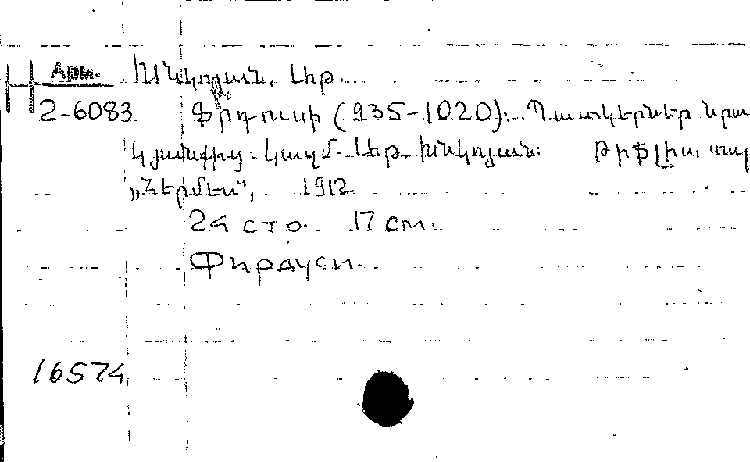 Արտ. Խնկոյան, Աթ.
2-6083 Ֆիրդուսի (935-1020): Պատկերներ նրա
կյանքից. Կազմ. Աթ. Խնկոյան: Թիֆլիս, տպ
„Հերմես“, 1912
24 стр. 17 cm.
Фирдуси.
16574